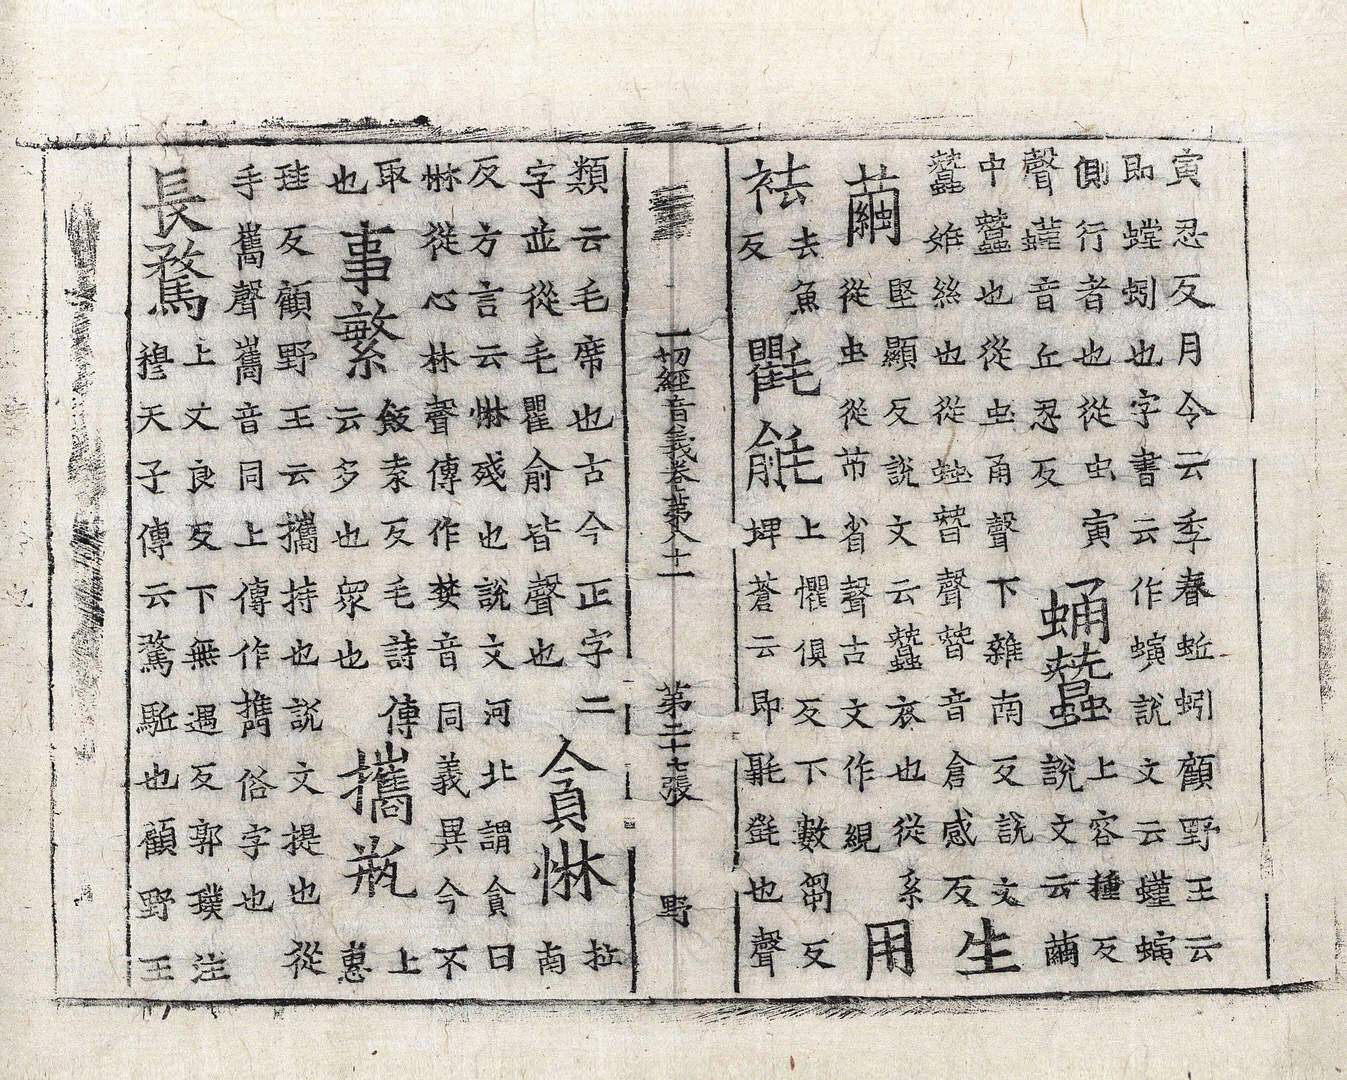 寅忍反月令云季春蚯蚓顧野王云
即螳蚓也字書云作螾說文云螼螾
側行者也從虫寅
聲螼音丘忍反
蛹蠶
上容種反
說文云繭
中蠶也從虫甬聲下雜南反說文
蠶妳絲也從䖵朁聲朁音倉感反
生
用
繭
堅顯反說文云蠶衣也從系
從虫從芇省聲古文作絸
袪
去魚
反
氍毹
上懼俱反下數芻反
埤蒼云即㲣也聲
一切經音義卷第八十一 第三十七張 野
類云毛席也古今正字二
字並從毛瞿俞皆聲也
貪惏
拉
南
反方言云惏殘也說文河北謂貪曰
惏從心林聲傳作婪音同義異今不
取
也
事繁
飯袁反毛詩傳
云多也眾也
攜瓶
上
惠
珪反顧野王云攜持也說文提也從
手巂聲巂音同上傳作擕俗字也
長騖
上丈良反下無遇反郭璞注
穆天子傳云騖駈也顧野王